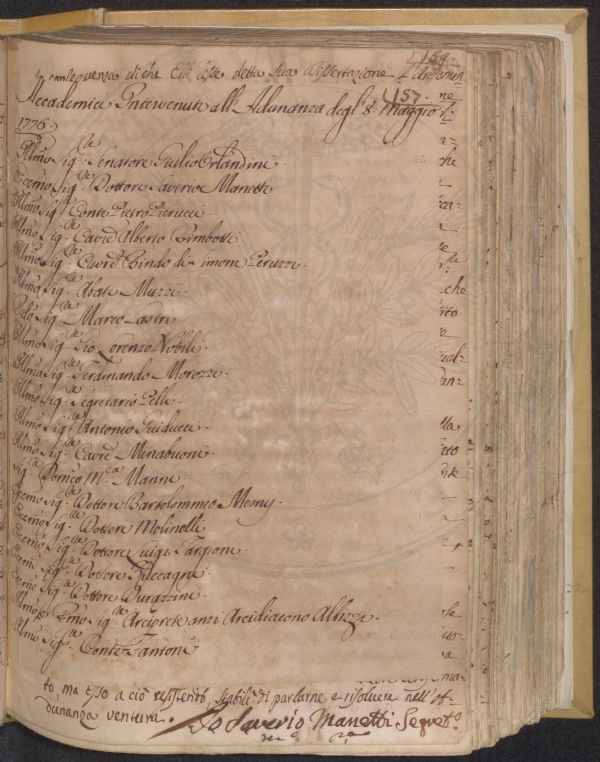 In conseguenza di che Ell. lesse detta sua Dissertazione
159
157.
Accademici Intervenuti all' Adunanza degl' 8. Maggio
1776.
Illmo Sig.re Senatore Giulio Orlandini.
Eccmo Sig.re Dottore Saverio Manetti
Illmo Sig.re Conte Pietro Pierucci.
Illmo Sig.re Cavre Alberto Rimbotti.
Illmo Sig.re Cavre Bindo Simone Peruzzi.
Illmo Sig.re Abate Muzzi.
Rdo Sig.re Marco Lastri
Illmo Sig.re Gio. Lorenzo Nobili.
Illmo Sig.re Ferdinando Morozzi.
Illmo Sig.re Segretario Pelli.
Illmo Sig.re Antonio Guiducci.
Illmo Sig.re Cavre Menabuoni.
Sig.re Domco Ma. Manni.
Eccmo Sig.re Dottore Bartolommeo Mesny.
Eccmo Sig.re Dottore Molinelli
Eccmo Sig.re Dottore Luigi Targioni.
Eccmo Sig.re Dottore Zuccagni.
Eccmo Sig.re Dottore Durazzini.
Illmo e Rmo Sig.re Arciprete anzi Arcidiacono Albizzi.
Illmo Sig.re Conte Fantoni
to, ma esso a ciò resistendo, stabilì di parlarne e risolvere nell' A-
dunanza ventura.
Io Saverio Manetti Segret.o